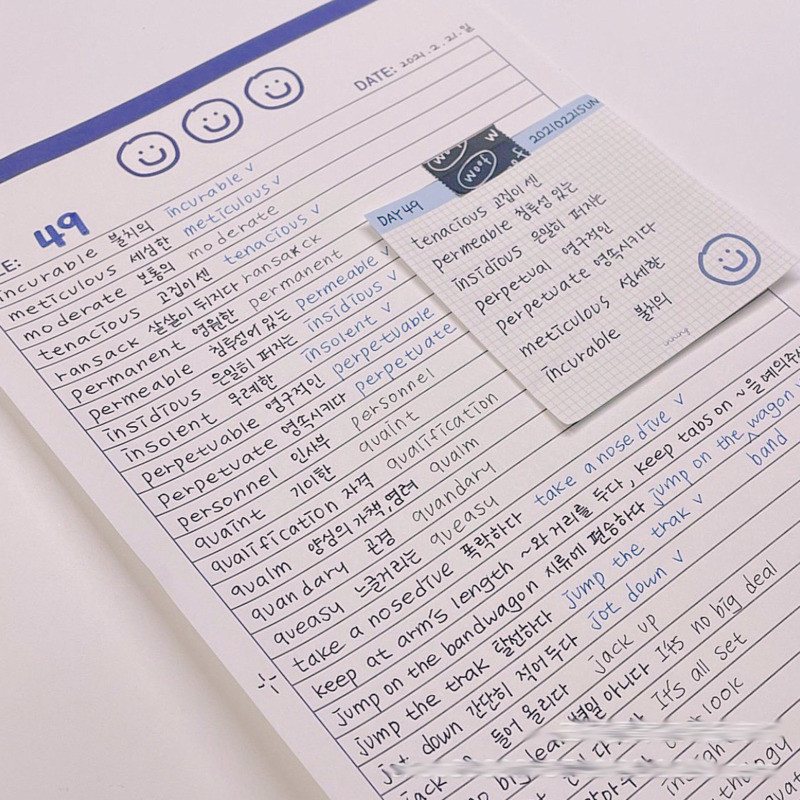 DATE: 2021.2.21.일
49
incurable 불치의 incurable ✓
meticulous 세심한 meticulous ✓
moderate 보통의 moderate
tenacious 고집이 센 tenacious ✓
ransack 샅샅이 뒤지다 ransack
permanent 영원한 permanent
permeable 침투성이 있는 permeable ✓
insidious 은밀히 퍼지는 insidious ✓
insolent 무례한 insolent ✓
perpetuable 영구적인 perpetuable
perpetuate 영속시키다 perpetuate
personnel 인사부 personnel
quaint 기이한 quaint
qualification 자격 qualification
qualm 양심의 가책, 염려 qualm
quandary 곤경 quandary
queasy 느글거리는 queasy
take a nosedive 폭락하다 take a nosedive ✓
keep at arm's length ~와 거리를 두다, keep tabs on ~을 예의주시
jump on the bandwagon 시류에 편승하다 jump on the wagon
band
jump the trak 탈선하다 jump the trak ✓
jot down 간단히 적어 두다 jot down ✓
jack up 들어 올리다 jack up
no big deal 별일 아니다 It's no big deal
It's all set
look
woof
20210221SUN
DAY 49
tenacious 고집이 센
permeable 침투성 있는
insidious 은밀히 퍼지는
perpetual 영구적인
perpetuate 영속시키다
meticulous 섬세한
incurable 불치의